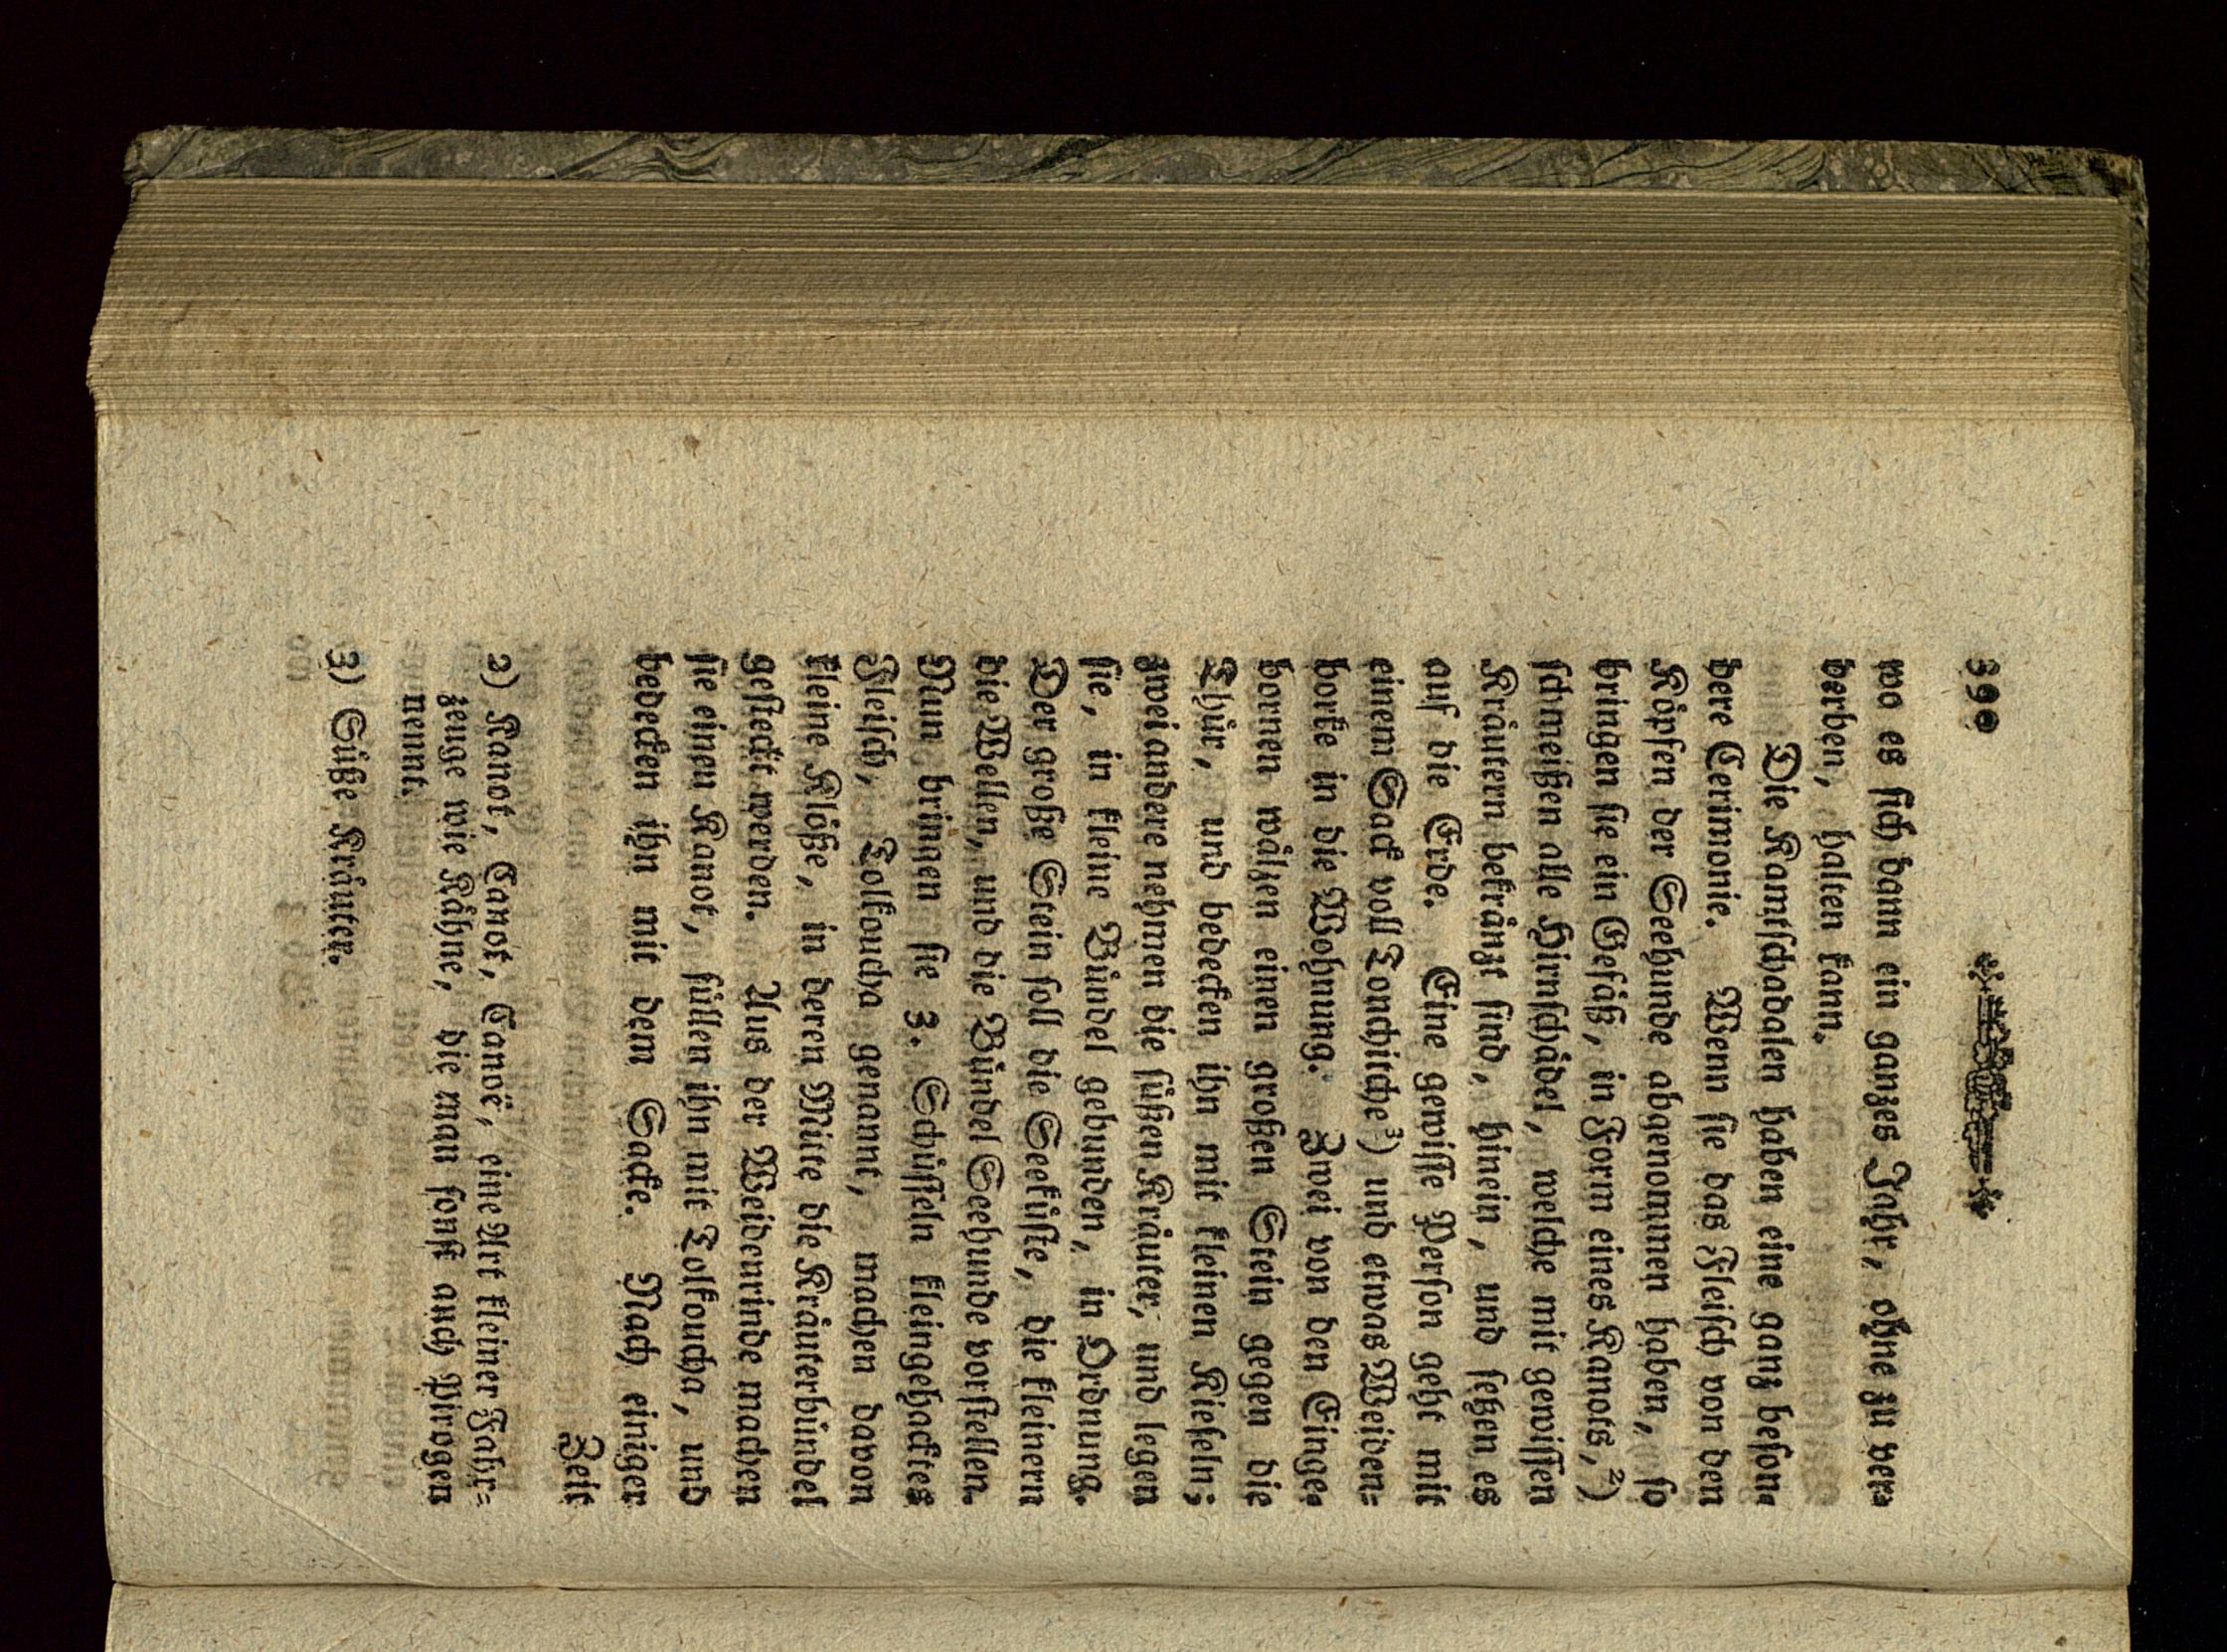 390
wo es sich dann ein ganzes Jahr, ohne zu ver-
derben, halten kann.
Die Kamtschadalen haben eine ganz beson-
dere Cerimonie. Wenn sie das Fleisch von den
Köpfen der Seehunde abgenommen haben, so
bringen sie ein Gefäß, in Form eines Kanots,²)
schmeißen alle Hirnschädel, welche mit gewissen
Kräutern bekränzt sind, hinein, und setzen es
auf die Erde. Eine gewisse Person geht mit
einem Sack voll Tonchitche³) und etwas Weiden-
borke in die Wohnung. Zwei von den Einge-
bornen wälzen einen großen Stein gegen die
Thür, und bedecken ihn mit kleinen Kieseln;
zwei andere nehmen die süßen Kräuter, und legen
sie, in kleine Bündel gebunden, in Ordnung.
Der große Stein soll die Seeküste, die kleinern
die Wellen, und die Bündel Seehunde vorstellen.
Nun bringen sie 3. Schüsseln kleingehacktes
Fleisch, Tolkoucha genannt, machen davon
kleine Klöße, in deren Mitte die Kräuterbündel
gesteckt werden. Aus der Weidenrinde machen
sie einen Kanot, füllen ihn mit Tolkoucha, und
bedecken ihn mit dem Sacke. Nach einiger
Zeit
2) Kanot, Canot, Canoë, eine Art kleiner Fahr-
zeuge wie Kähne, die man sonst auch Pirogen
nennt.
3) Süße Kräuter.